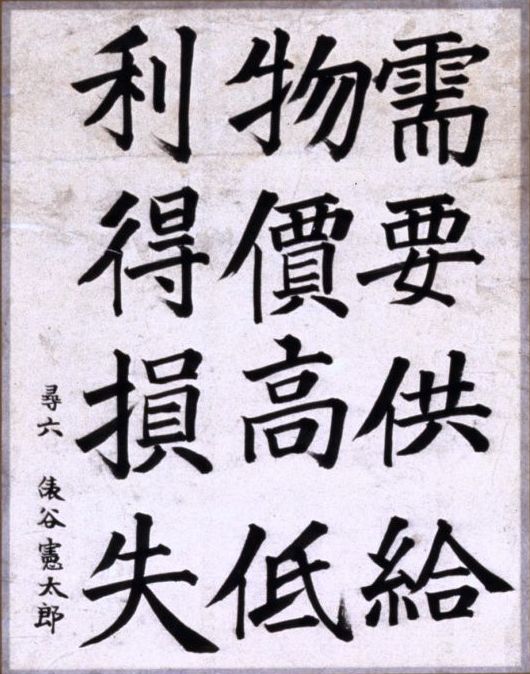 需要供給
物價高低
利得損失
尋六 俵谷憲太郎